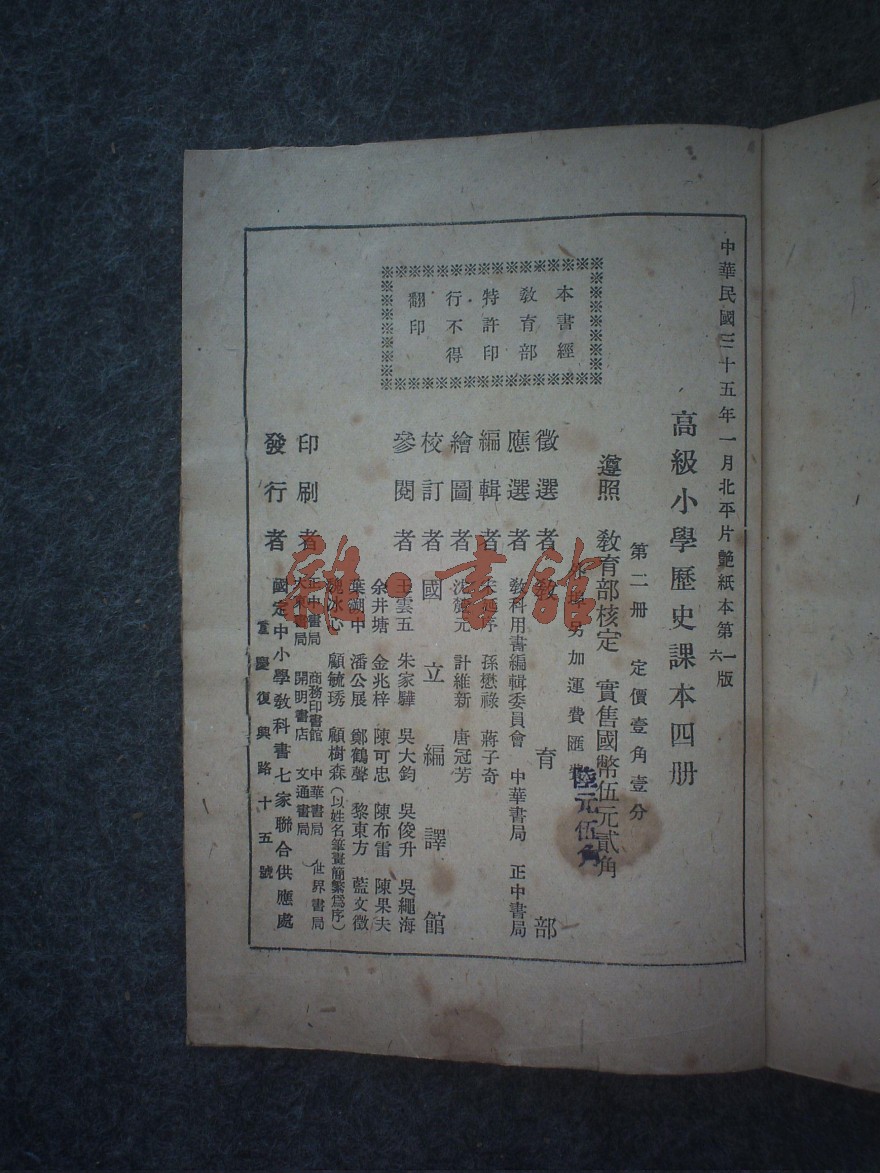 中華民國三十五年一月北平片艷紙本第一六版
高級小學歷史課本四册
第二册 定價壹角壹分
遵照 教育部核定 實售國幣伍元貳角
陸元伍角
另加運費匯費
本書經
教育部
特許印
行不得
翻印
徵選者 教育部
應選者 教科用書編輯委員會 中華書局 正中書局
編輯者 孫懋祿 蔣子奇
繪圖者 沈麓元 計維新 唐冠芳
校訂者 國立編譯館
參閱者 王雲五 朱家驊 吳大鈞 吳俊升 吳繩海
余井塘 金兆梓 陳可忠 陳布雷 陳果夫
葉溯中 潘公展 鄭鶴聲 黎東方 藍文徵
魏冰心 顧毓琇 顧樹森(以姓名筆畫簡繁爲序)
印刷者 正中書局 商務印書館 中華書局 世界書局
大東書局 開明書店 文通書局
發行者 國定中小學教科書七家聯合供應處
重慶復興路十五號
雜·書館